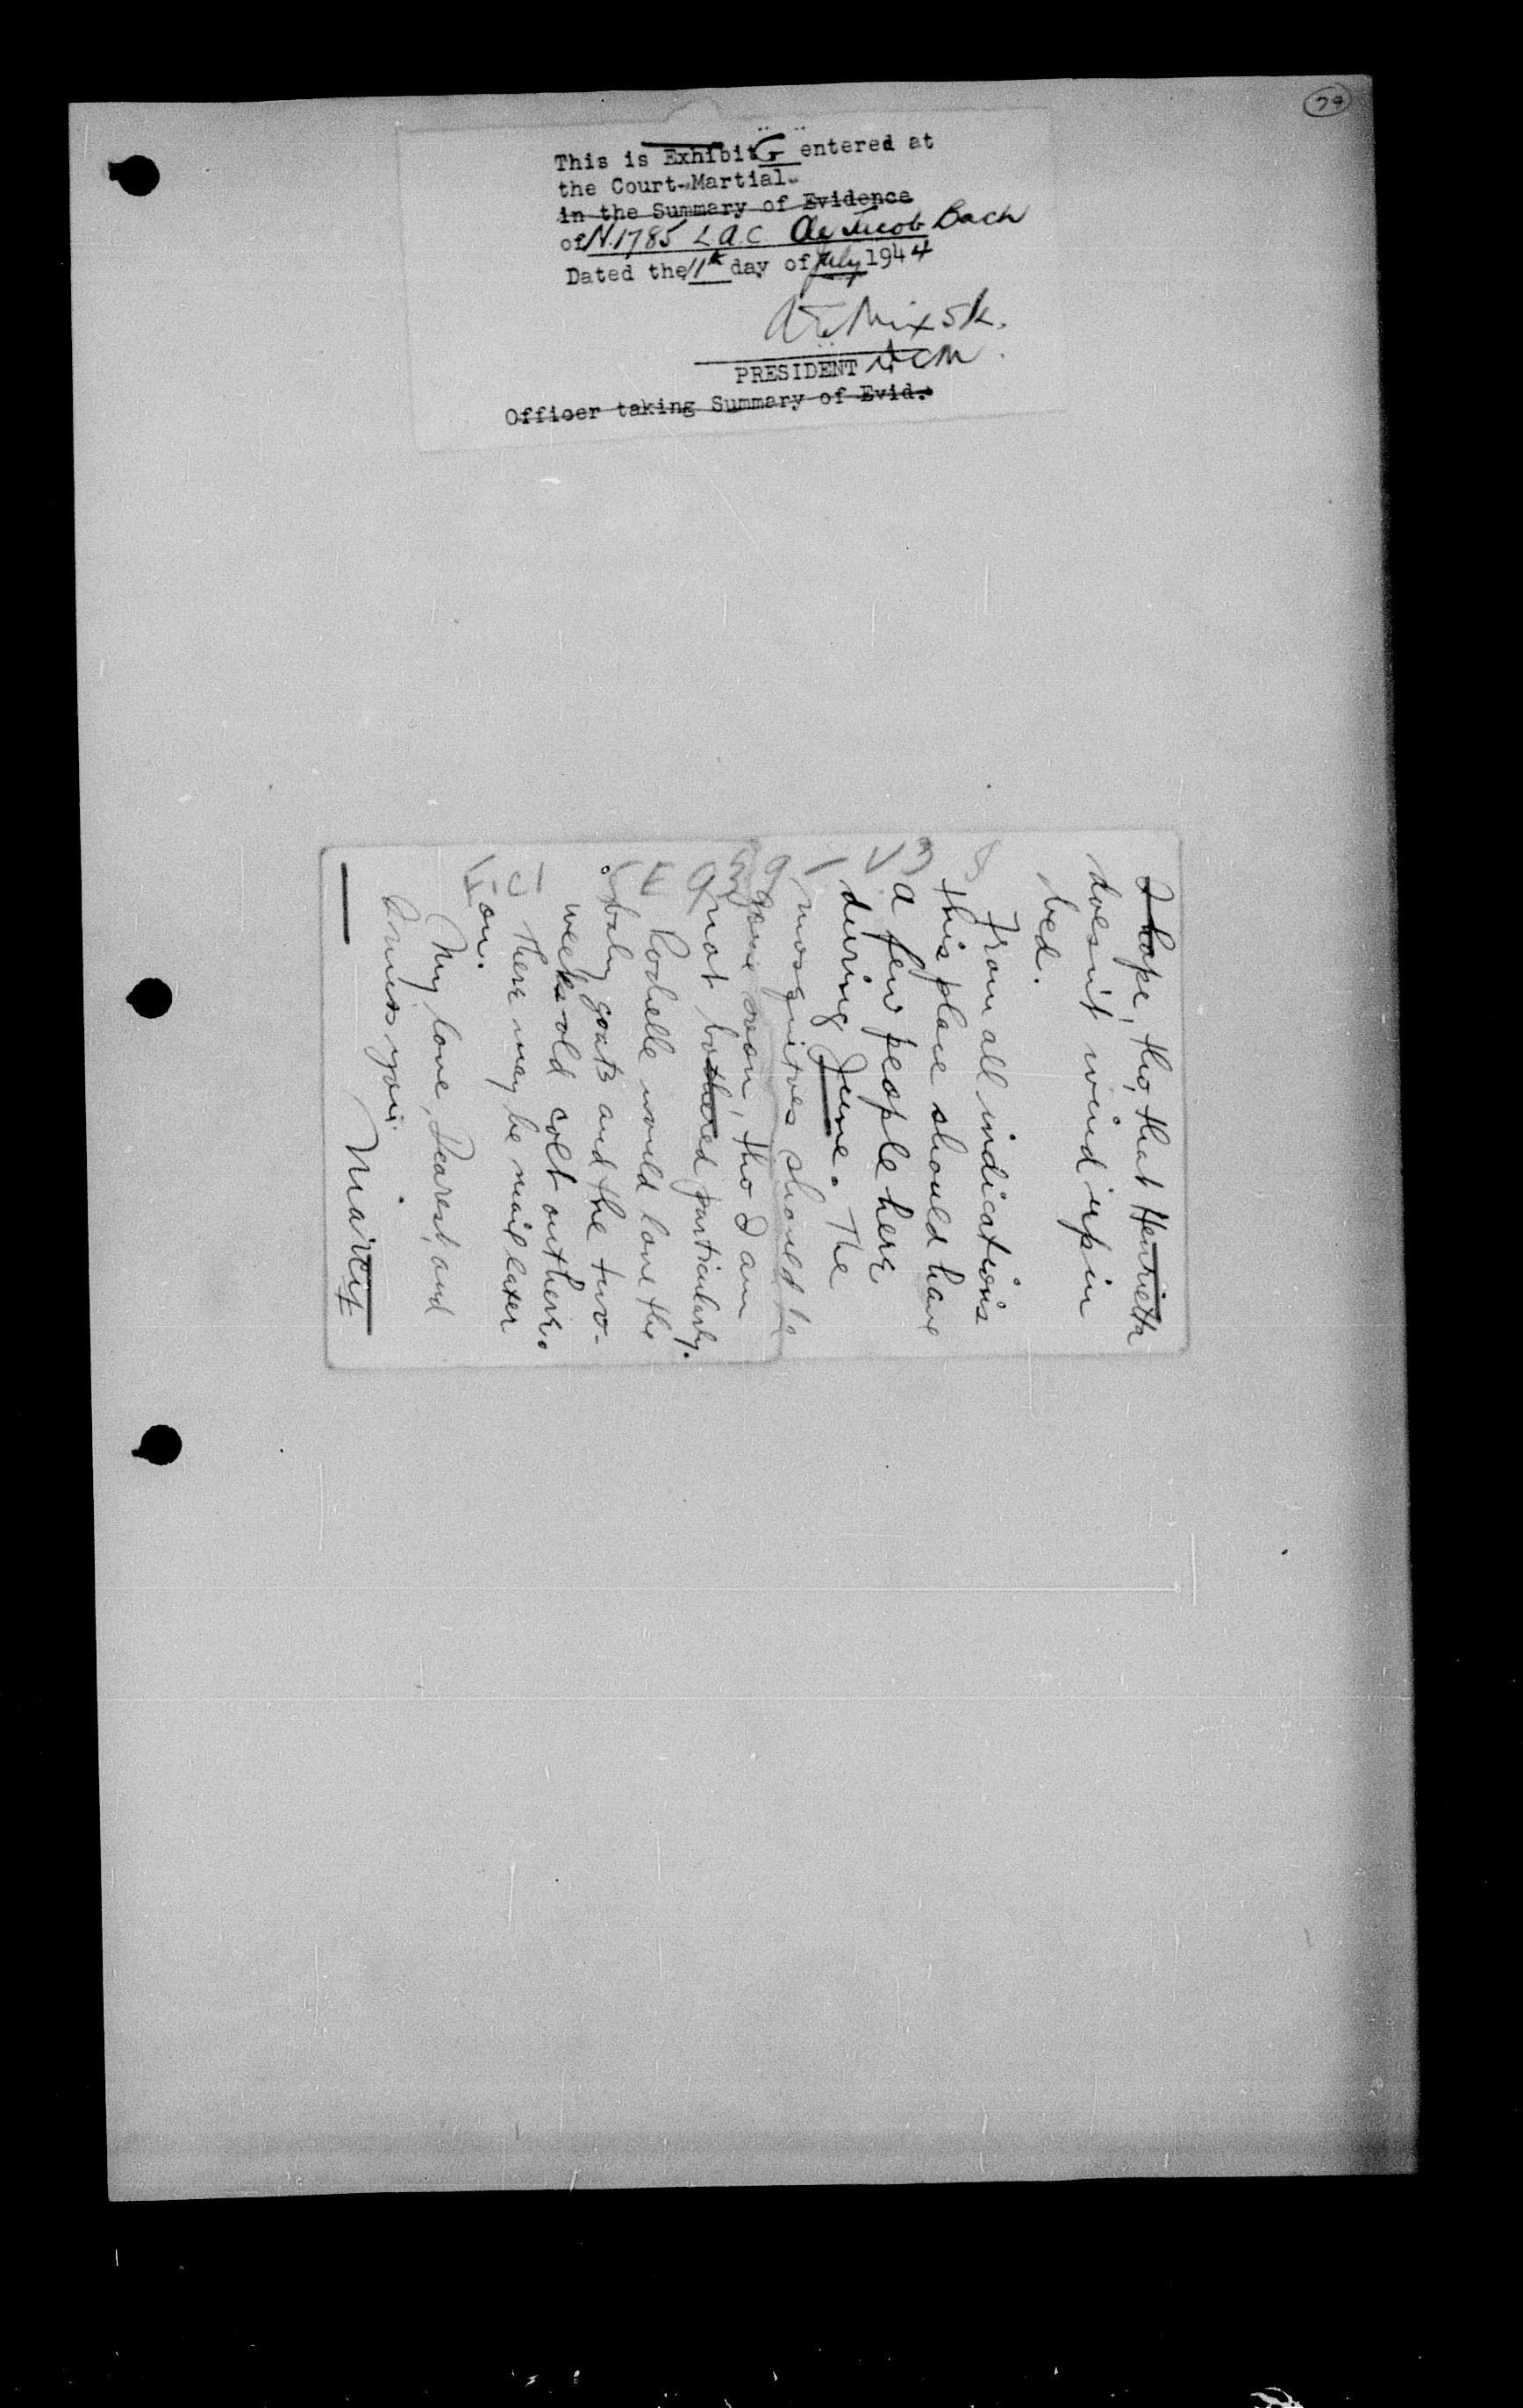 79
This is Exhibit G entered at
the Court-Martial.
in the Summary of Evidence
of N.1785 L.A.C. Bach
Dated the 11th day of July 1944
PRESIDENT DCM.
Officer taking Summary of Evid.
I hope, tho, that Henrietta
doesn't wind up in
bed.
From all indications
this place should have
a few people here
during June. The
mosquitoes should be
gone soon, tho I am
not bothered particularly.
Rochelle would love the
baby goats and the two-
weeks-old colt out here.
There may be mail later
on.
My love, Dearest, and
I miss you.
Marcy